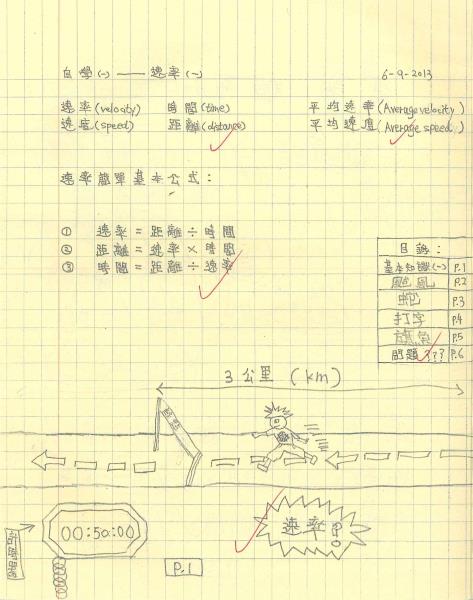 自學(一) —— 速率(一) 6-9-2013
速率(velocity) 時間(time) 平均速率(Average velocity)
速度(speed) 距離(distance) 平均速度(Average speed)
速率簡單基本公式:
① 速率=距離÷時間
② 距離=速率×時間
③ 時間=距離÷速率
目錄:
基本知識(一) P.1
颱風 P.2
蛇 P.3
打字 P.4
旗魚 P.5
問題??? P.6
3公里 (km)
終點
計時器
00:50:00
速率?!
P.1